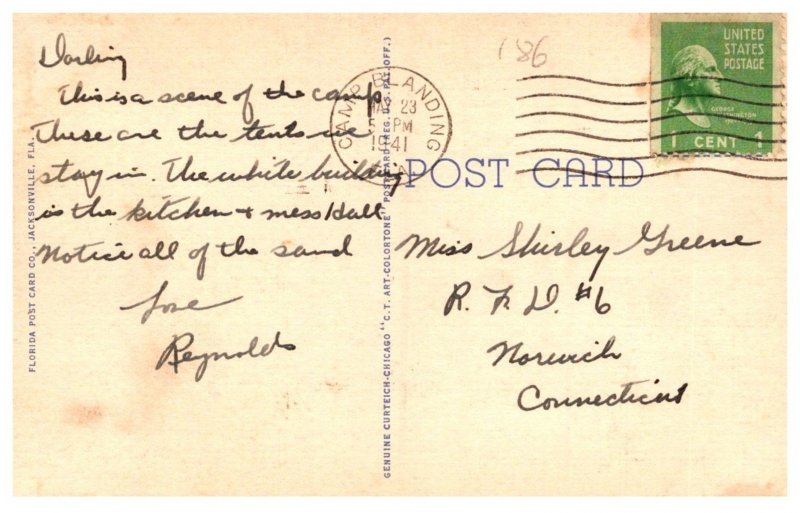 Darling
This is a scene of the camp
These are the tents we
stay in. The white building
is the kitchen + mess Hall
Notice all of the sand
Love
Reynolds
FLORIDA POST CARD CO., JACKSONVILLE, FLA.
GENUINE CURTEICH-CHICAGO "C.T. ART-COLORTONE" POST CARD (REG. U.S. PAT. OFF.)
186
CAMP BLANDING
23
PM
1941
UNITED
STATES
POSTAGE
GEORGE
WASHINGTON
1 CENT 1
POST CARD
Miss Shirley Greene
R. F. D. #6
Norwich
Connecticut